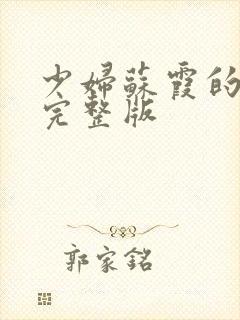 少婦蘇霞的
完整版
郭家銘